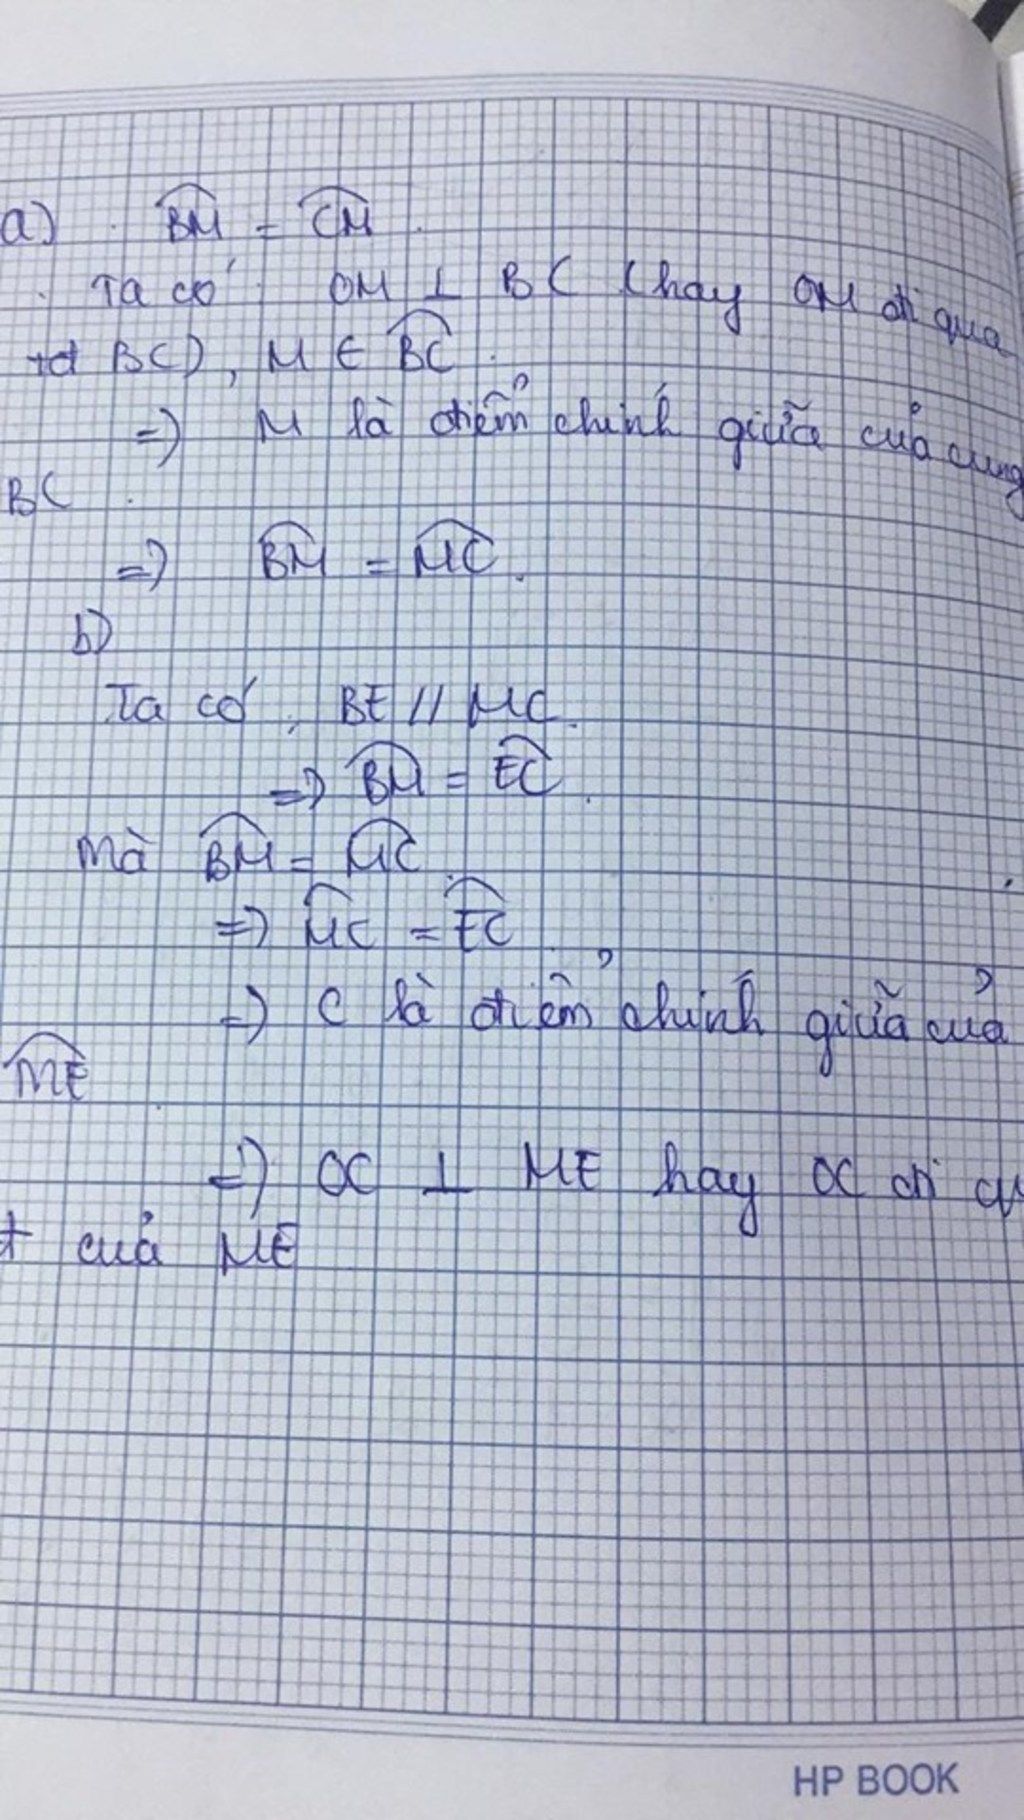 a) BM = CM.
Ta có OM ⊥ BC (hay OM đi qua
tđ BC), M ∈ BC.
=) M là điểm chính giữa của cung
BC
=) BM = MC.
b)
Ta có, BE // MC.
=) BM = EC.
Mà BM = MC.
=) MC = EC
=) C là điểm chính giữa của
ME
=) OC ⊥ ME hay OC đi
của ME
HP BOOK